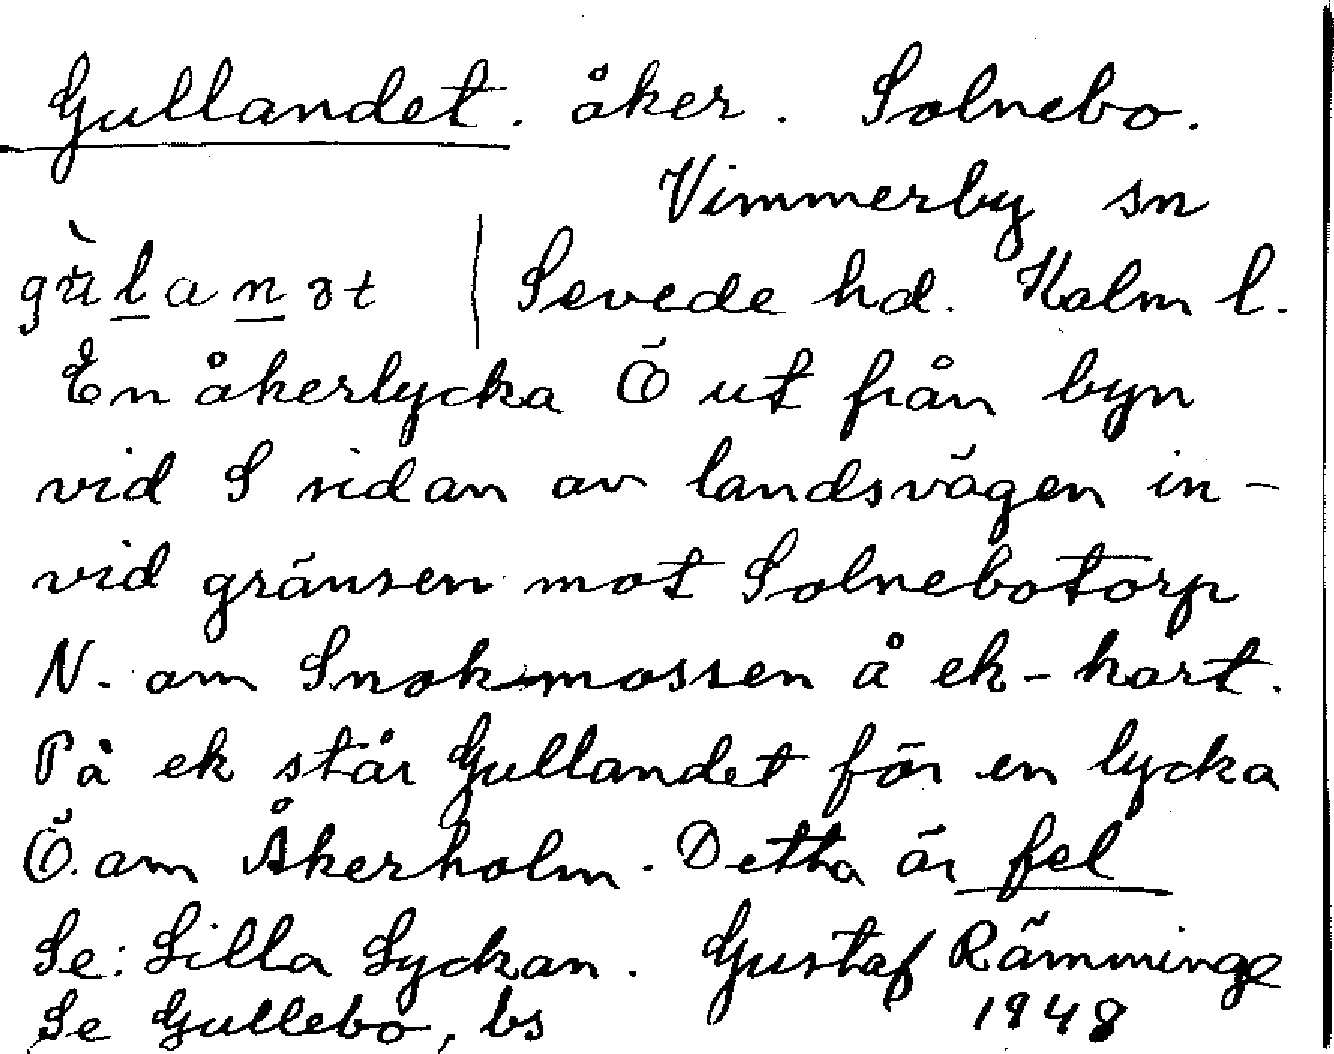 Gullandet. åker. Solnebo.
Vimmerby sn
gùlanət | Sevede hd. Kalm l.
En åkerlycka Ö ut från byn
vid S sidan av landsvägen in-
vid gränsen mot Solnebotorp
N. om Snokmossen å ek-kart.
På ek står Gullandet för en lycka
Ö. om Åkerholm. Detta är fel
Se: Lilla Lyckan. Gustaf Rämminge
Se Gullebo, bs 1948